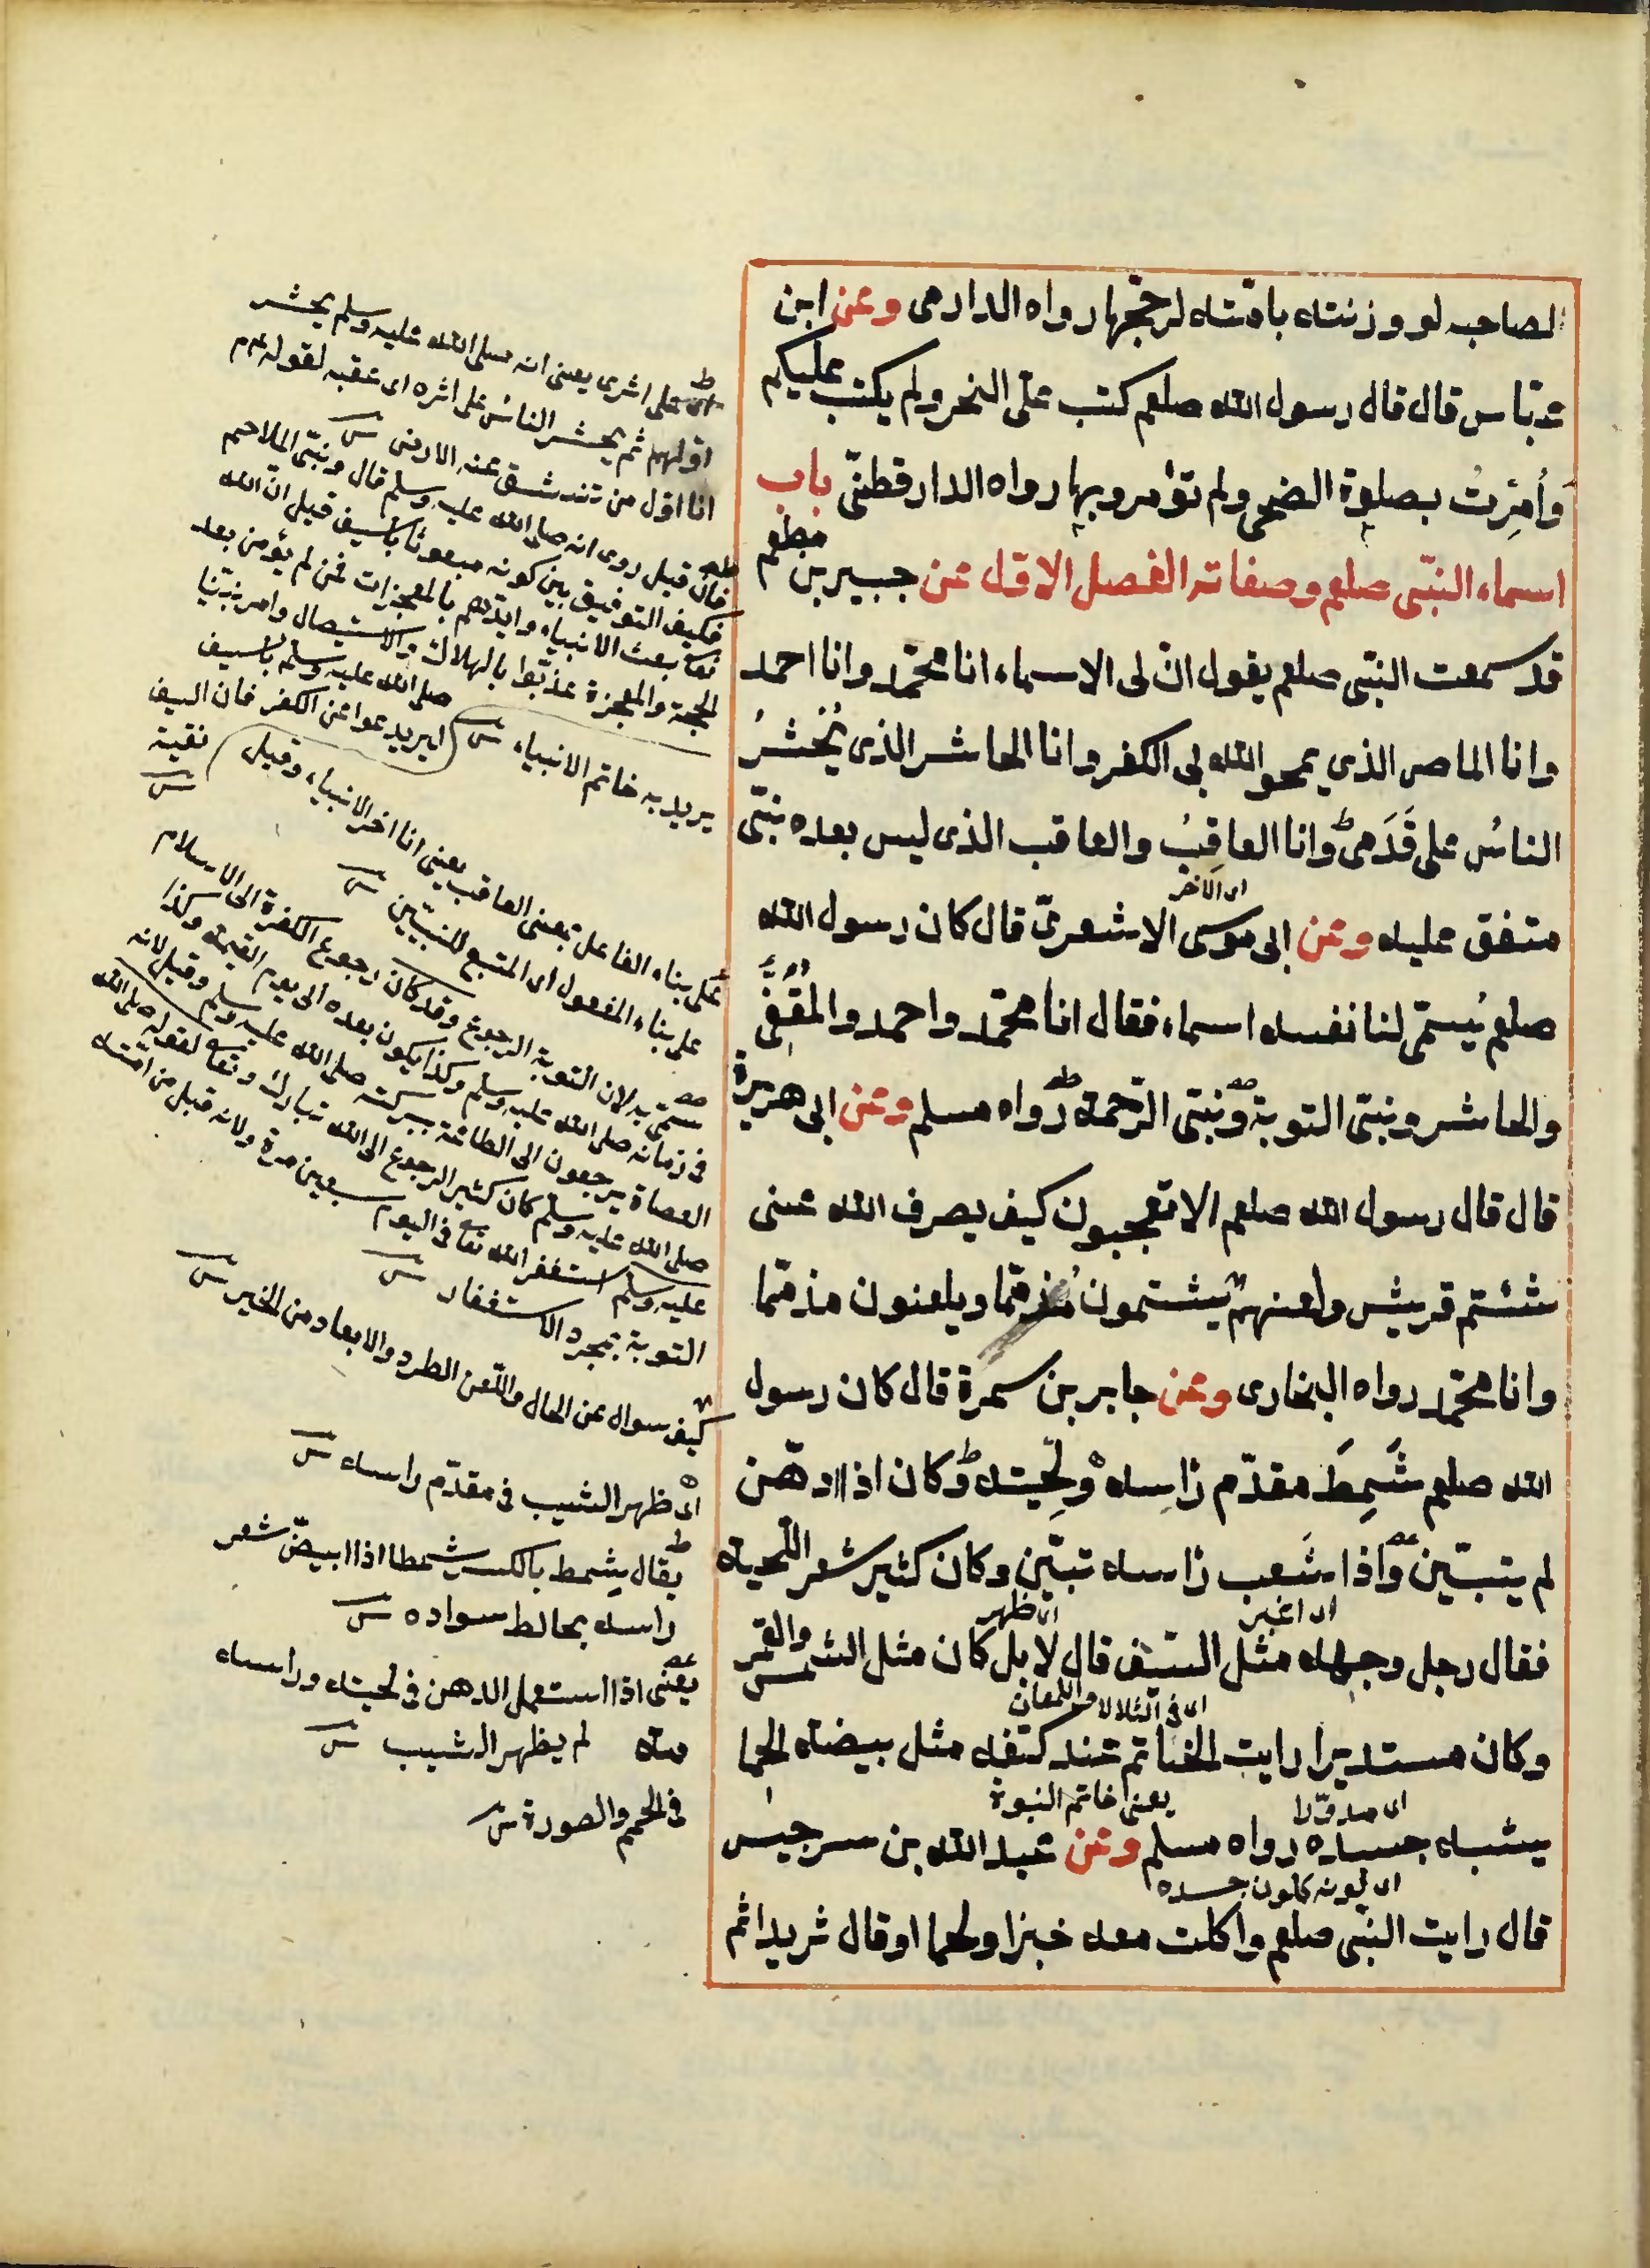 لصاحبه لو وزنته بامته لرجحها رواه الدارمى وعن ابن
عبّاس قال قال رسول الله صلعم كتب علىّ النحر ولم يكتب عليكم
وَأُمِرْتُ بصلوة الضحى ولم تؤمروا بها رواه الدارقطنىّ باب
اسماء النبىّ صلعم وصفاته الفصل الاوّل عن جبير بن مطعم
قد سمعت النبىّ صلعم يقول انّ لى الاسماء انا محمّد وانا احمد
وانا الماحى الذي يمحو الله بى الكفر وانا الحاشر الذى يُحْشَرُ
الناسُ على قَدَمىّ وانا العاقِبُ والعاقب الذى ليس بعده نبىّ
اى الآخر
متفق عليه وعن ابى موسى الاشعرىّ قال كان رسول الله
صلعم يُسمّى لنا نفسه اسماء فقال انا محمّد واحمد والمُقَفِّى
والحاشر ونبىّ التوبة ونبىّ الرّحمة رواه مسلم وعن ابى هريرة
قال قال رسول الله صلعم الا تعجبون كيف يصرف الله عنى
شتم قريش ولعنهم يشتمون مُذمّما ويلعنون مذمّما
وانا محمّد رواه البخارى وعن جابر بن سمرة قال كان رسول
الله صلعم شَمِطَ مقدّم رَاسه ولِحيته وكان اذا ادهّن
لم يتبيّن واذا شَعِث رَاسه تبيّن وكان كثير شعر اللّحية
اى اغبر اى ظهر
فقال رجل وجهه مثل السّيف قال لا بل كان مثل الشمس والقمر
اى فى التلالا واللمعان
وكان مستديرا رايت الخاتم عند كتفه مثل بيضة الحما
اى مدوّرا يعنى خاتم النبوة
يشبه جسده رواه مسلم وعن عبد الله بن سرجيس
اى لونه كلون جسده
قال رايت النبى صلعم واكلت معه خبزا ولحما او قال ثريدا ثم
اى على اثرى يعنى انه صلى الله عليه وسلم يحشر
اولهم ثم يحشر الناس على اثره اى عقبه لقوله عم
انا اوّل من تنشق عنه الارض
فان قيل روى انه صلى الله عليه وسلم قال ونبىّ الملاحم
فكيف التوفيق بين كونه مبعوثا بالسيف قيل انّ الله
تعا بعث الانبياء وايّدهم بالمعجزات فمن لم يؤمن بعد
الحجة والمعجزة عذّبوا بالهلاك والاستيصال وامر نبيّنا
صلى الله عليه وسلم بالسيف
ليرتدعوا عن الكفر فان السيف
يريد به خاتم الانبياء
بقية
على بناء الفاعل بمعنى العاقب يعنى انا اخر الانبياء وقيل
على بناء المفعول اى المتبع للنبيّين
سمّى به لان التوبة الرجوع وقد كان رجوع الكفرة الى الاسلام
فى زمانه صلى الله عليه وسلم وكذا يكون بعده الى يوم القيمة وكذا
العصاة يرجعون الى الطاعة ببركته صلى الله عليه وسلم وقيل لانه
صلى الله عليه وسلم كان كثير الرجوع الى الله تبارك وتعا لقوله صلى الله
عليه وسلم استغفر الله تعا فى اليوم سبعين مرة ولانه قبل من امته
التوبة بمجرد الاستغفار
كيف سوال عن الحال واللّعن الطرد والابعاد من الخير
اى ظهر الشيب فى مقدّم راسه
يقال شمط بالكسر يشمط شمطا اذا ابيضّ شعر
راسه يخالط سواده
يعنى اذا استعمل الدهن فى لحيته وراسه
لم يظهر الشيب منه
فى الحجم والصورة